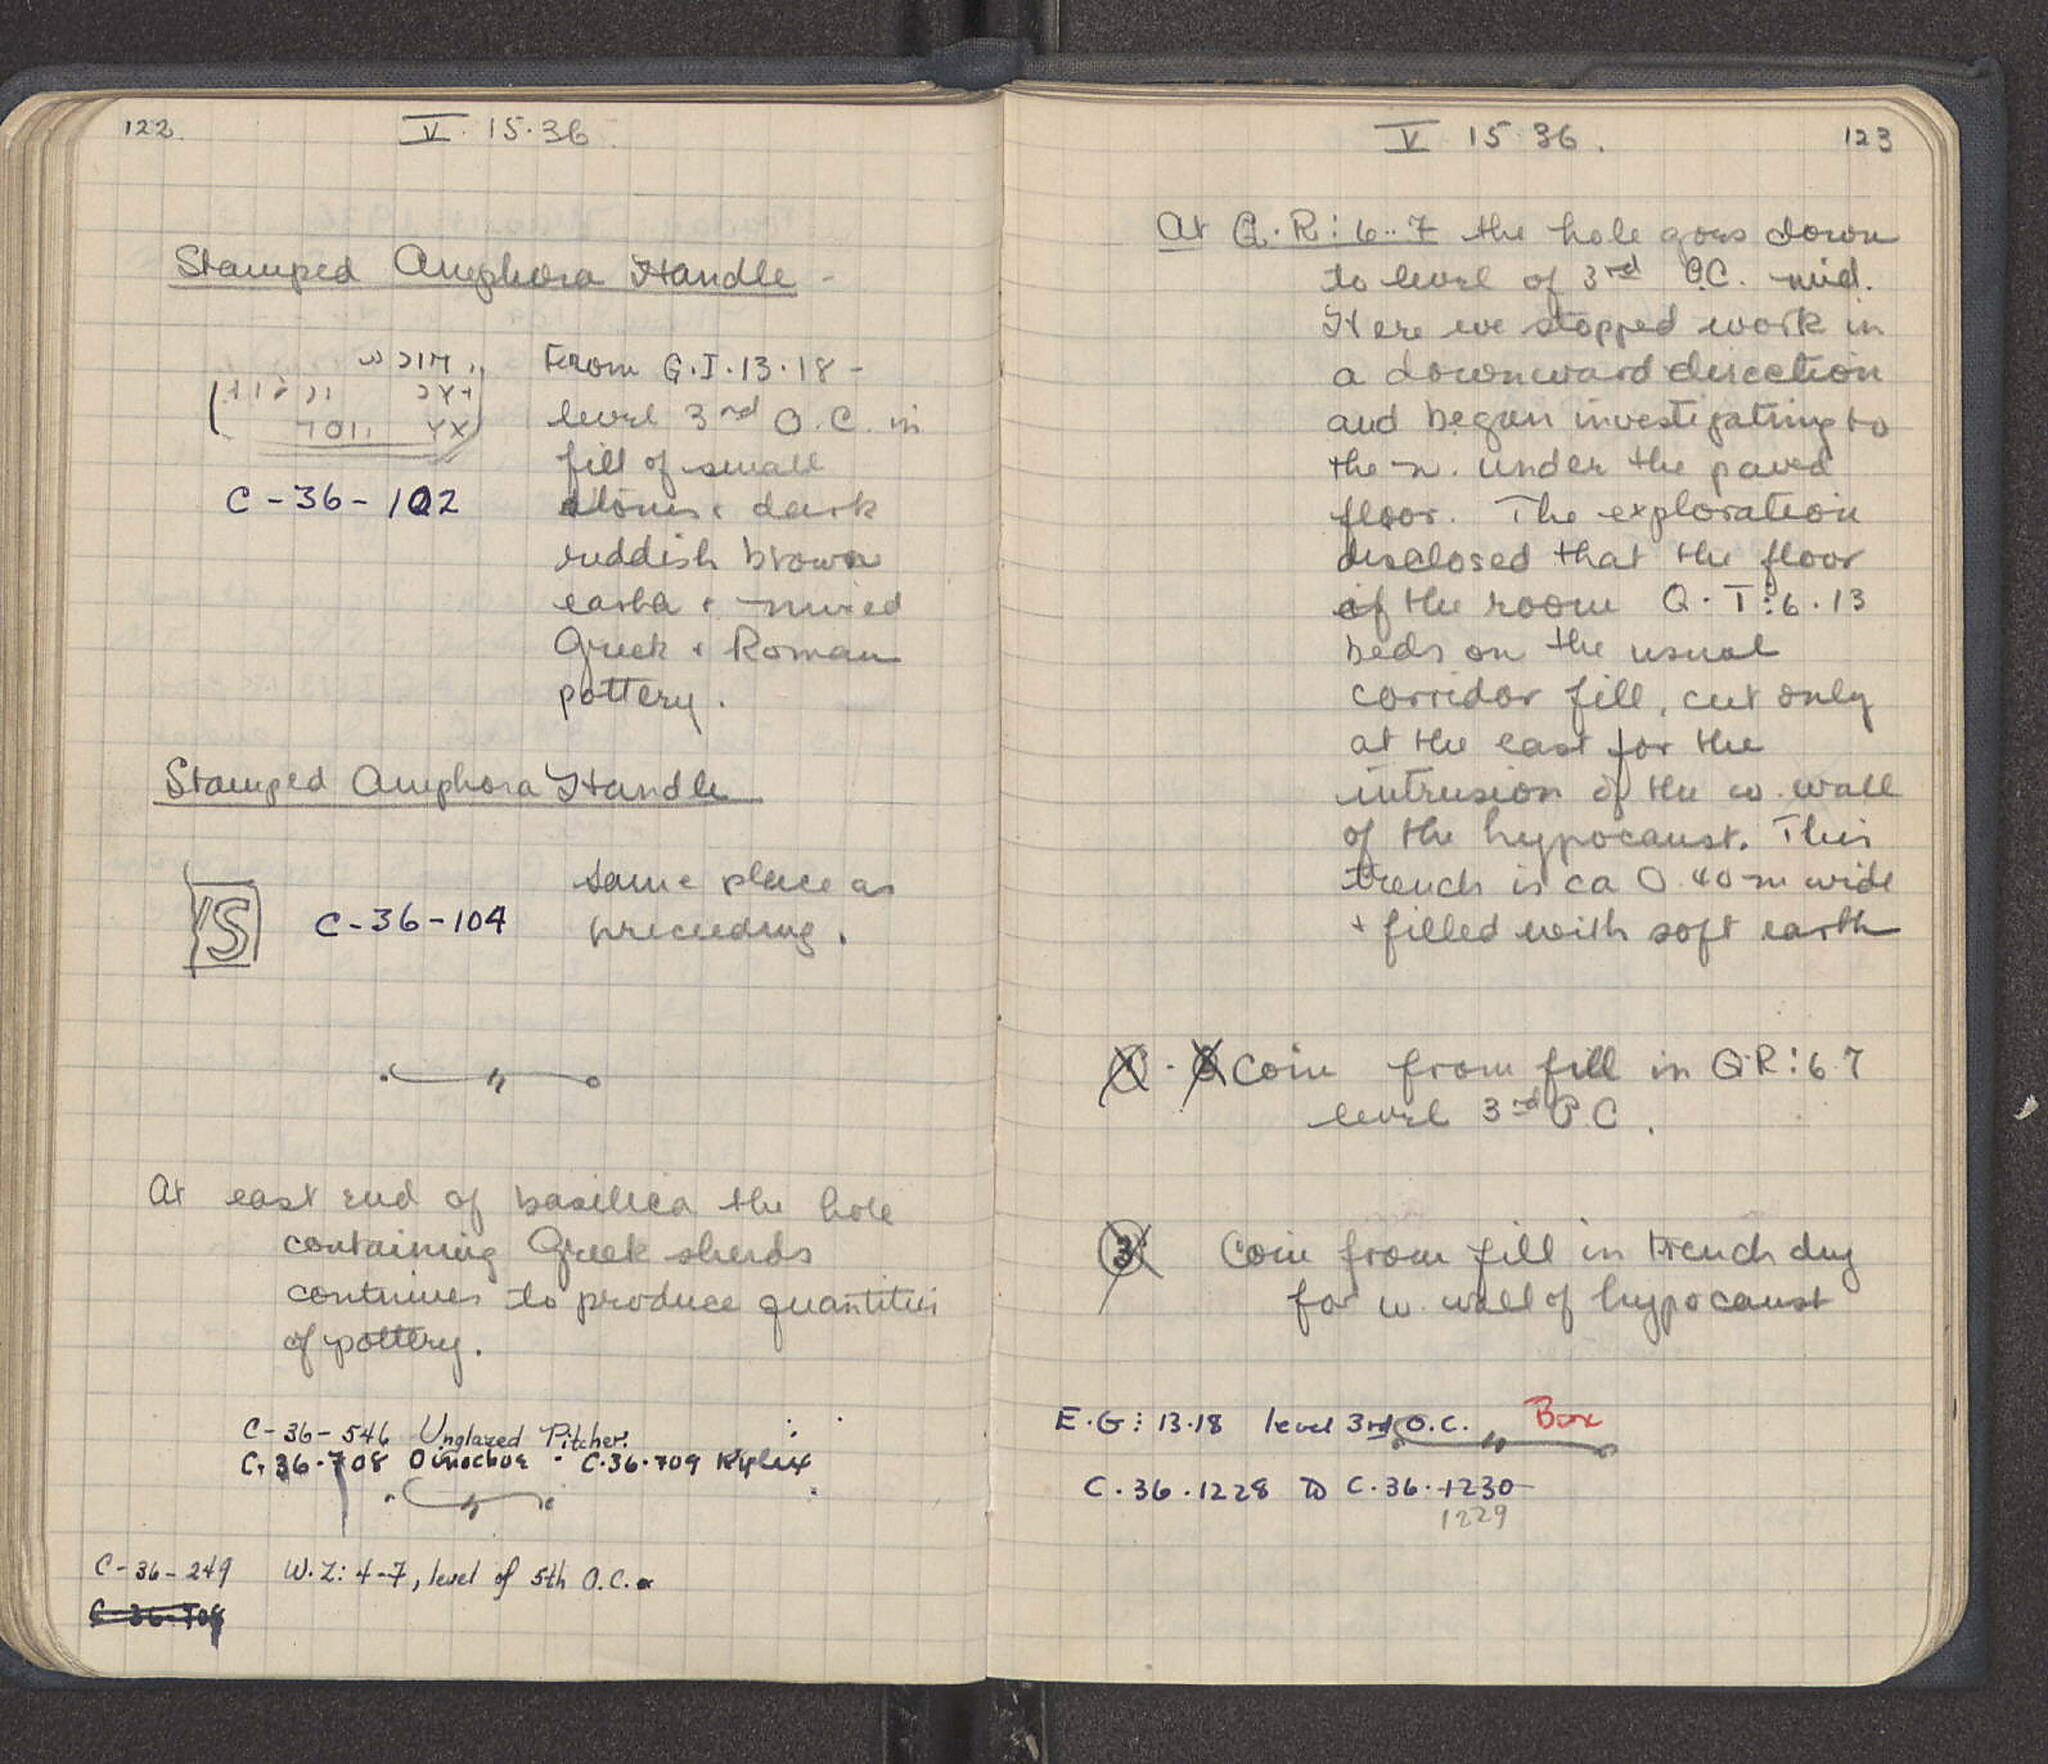 122
V. 15.36
Stamped Amphora Handle -
From G.I.13.18 -
level 3rd O.C. in
fill of small
stones & dark
reddish brown
earth & mixed
Greek & Roman
pottery.
C-36-102
Stamped Amphora Handle
same place as
preceeding.
C-36-104
At east end of basilica the hole
containing Greek sherds
continues to produce quantities
of pottery.
C-36-546 Unglazed Pitcher.
C.36.708 Oinochoe - C.36.709 Kylix
C-36-249 W.Z: 4-7, level of 5th O.C.
C-36-708
V 15.36.
123
At Q.R:6..7 the hole goes down
to level of 3rd O.C. mid.
Here we stopped work in
a downward direction
and began investigating to
the n. under the paved
floor. The exploration
disclosed that the floor
of the room Q.T:6.13
beds on the usual
corridor fill, cut only
at the east for the
intrusion of the w. wall
of the hypocaust. This
trench is ca 0.40 m wide
+ filled with soft earth
Coin from fill in Q.R:6.7
level 3rd O.C.
3 Coin from fill in trench dug
for w. wall of hypocaust
E.G: 13.18 level 3rd O.C. Box
C.36.1228 To C.36.1230
1229